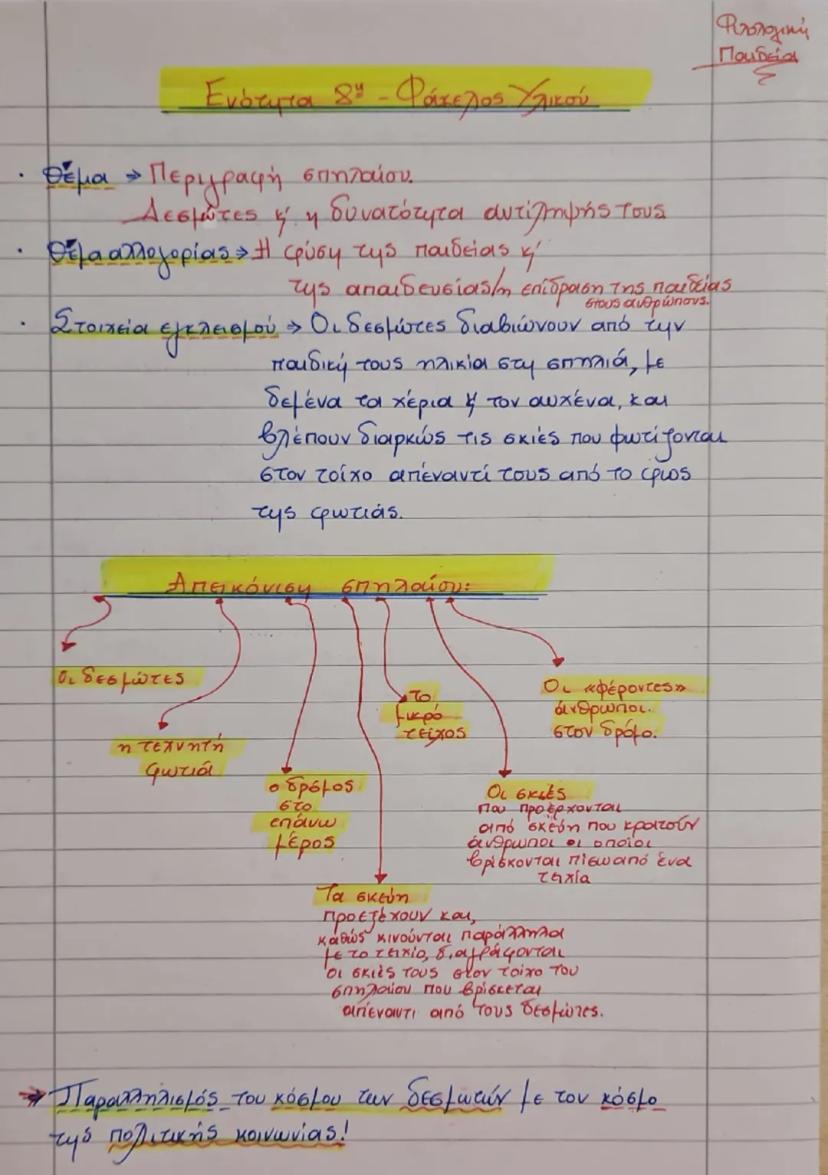 Φιλολογική
Παιδεία
Ενότητα 8η - Φάκελος Υλικού
· Θέμα → Περιγραφή σπηλαίου.
Δεσμώτες κ' η δυνατότητα αντίληψής τους
· Θέμα αλληγορίας → Η φύση της παιδείας κ'
της απαιδευσίας/η επίδραση της παιδείας
στους ανθρώπους.
· Στοιχεία εγκλεισμού → Οι δεσμώτες διαβιώνουν από την
παιδική τους ηλικία στη σπηλιά, με
δεμένα τα χέρια κ' τον αυχένα, και
βλέπουν διαρκώς τις σκιές που φωτίζονται
στον τοίχο απέναντί τους από το φως
της φωτιάς.
Απεικόνιση σπηλαίου:
οι δεσμώτες
η τεχνητή
φωτιά
ο δρόμος
στο
επάνω
μέρος
Τα σκεύη
προεξέχουν και,
καθώς κινούνται παράλληλα
με το τειχίο, διαγράφονται
οι σκιές τους στον τοίχο του
σπηλαίου που βρίσκεται
απέναντι από τους δεσμώτες.
το
μικρό
τείχος
Οι σκιές
που προέρχονται
από σκεύη που κρατούν
άνθρωποι οι οποίοι
βρίσκονται πίσω από ένα
τειχία
Οι «φέροντες»
άνθρωποι.
στον δρόμο.
→ Παραλληλισμός του κόσμου των δεσμωτών με τον κόσμο
της πολιτικής κοινωνίας!